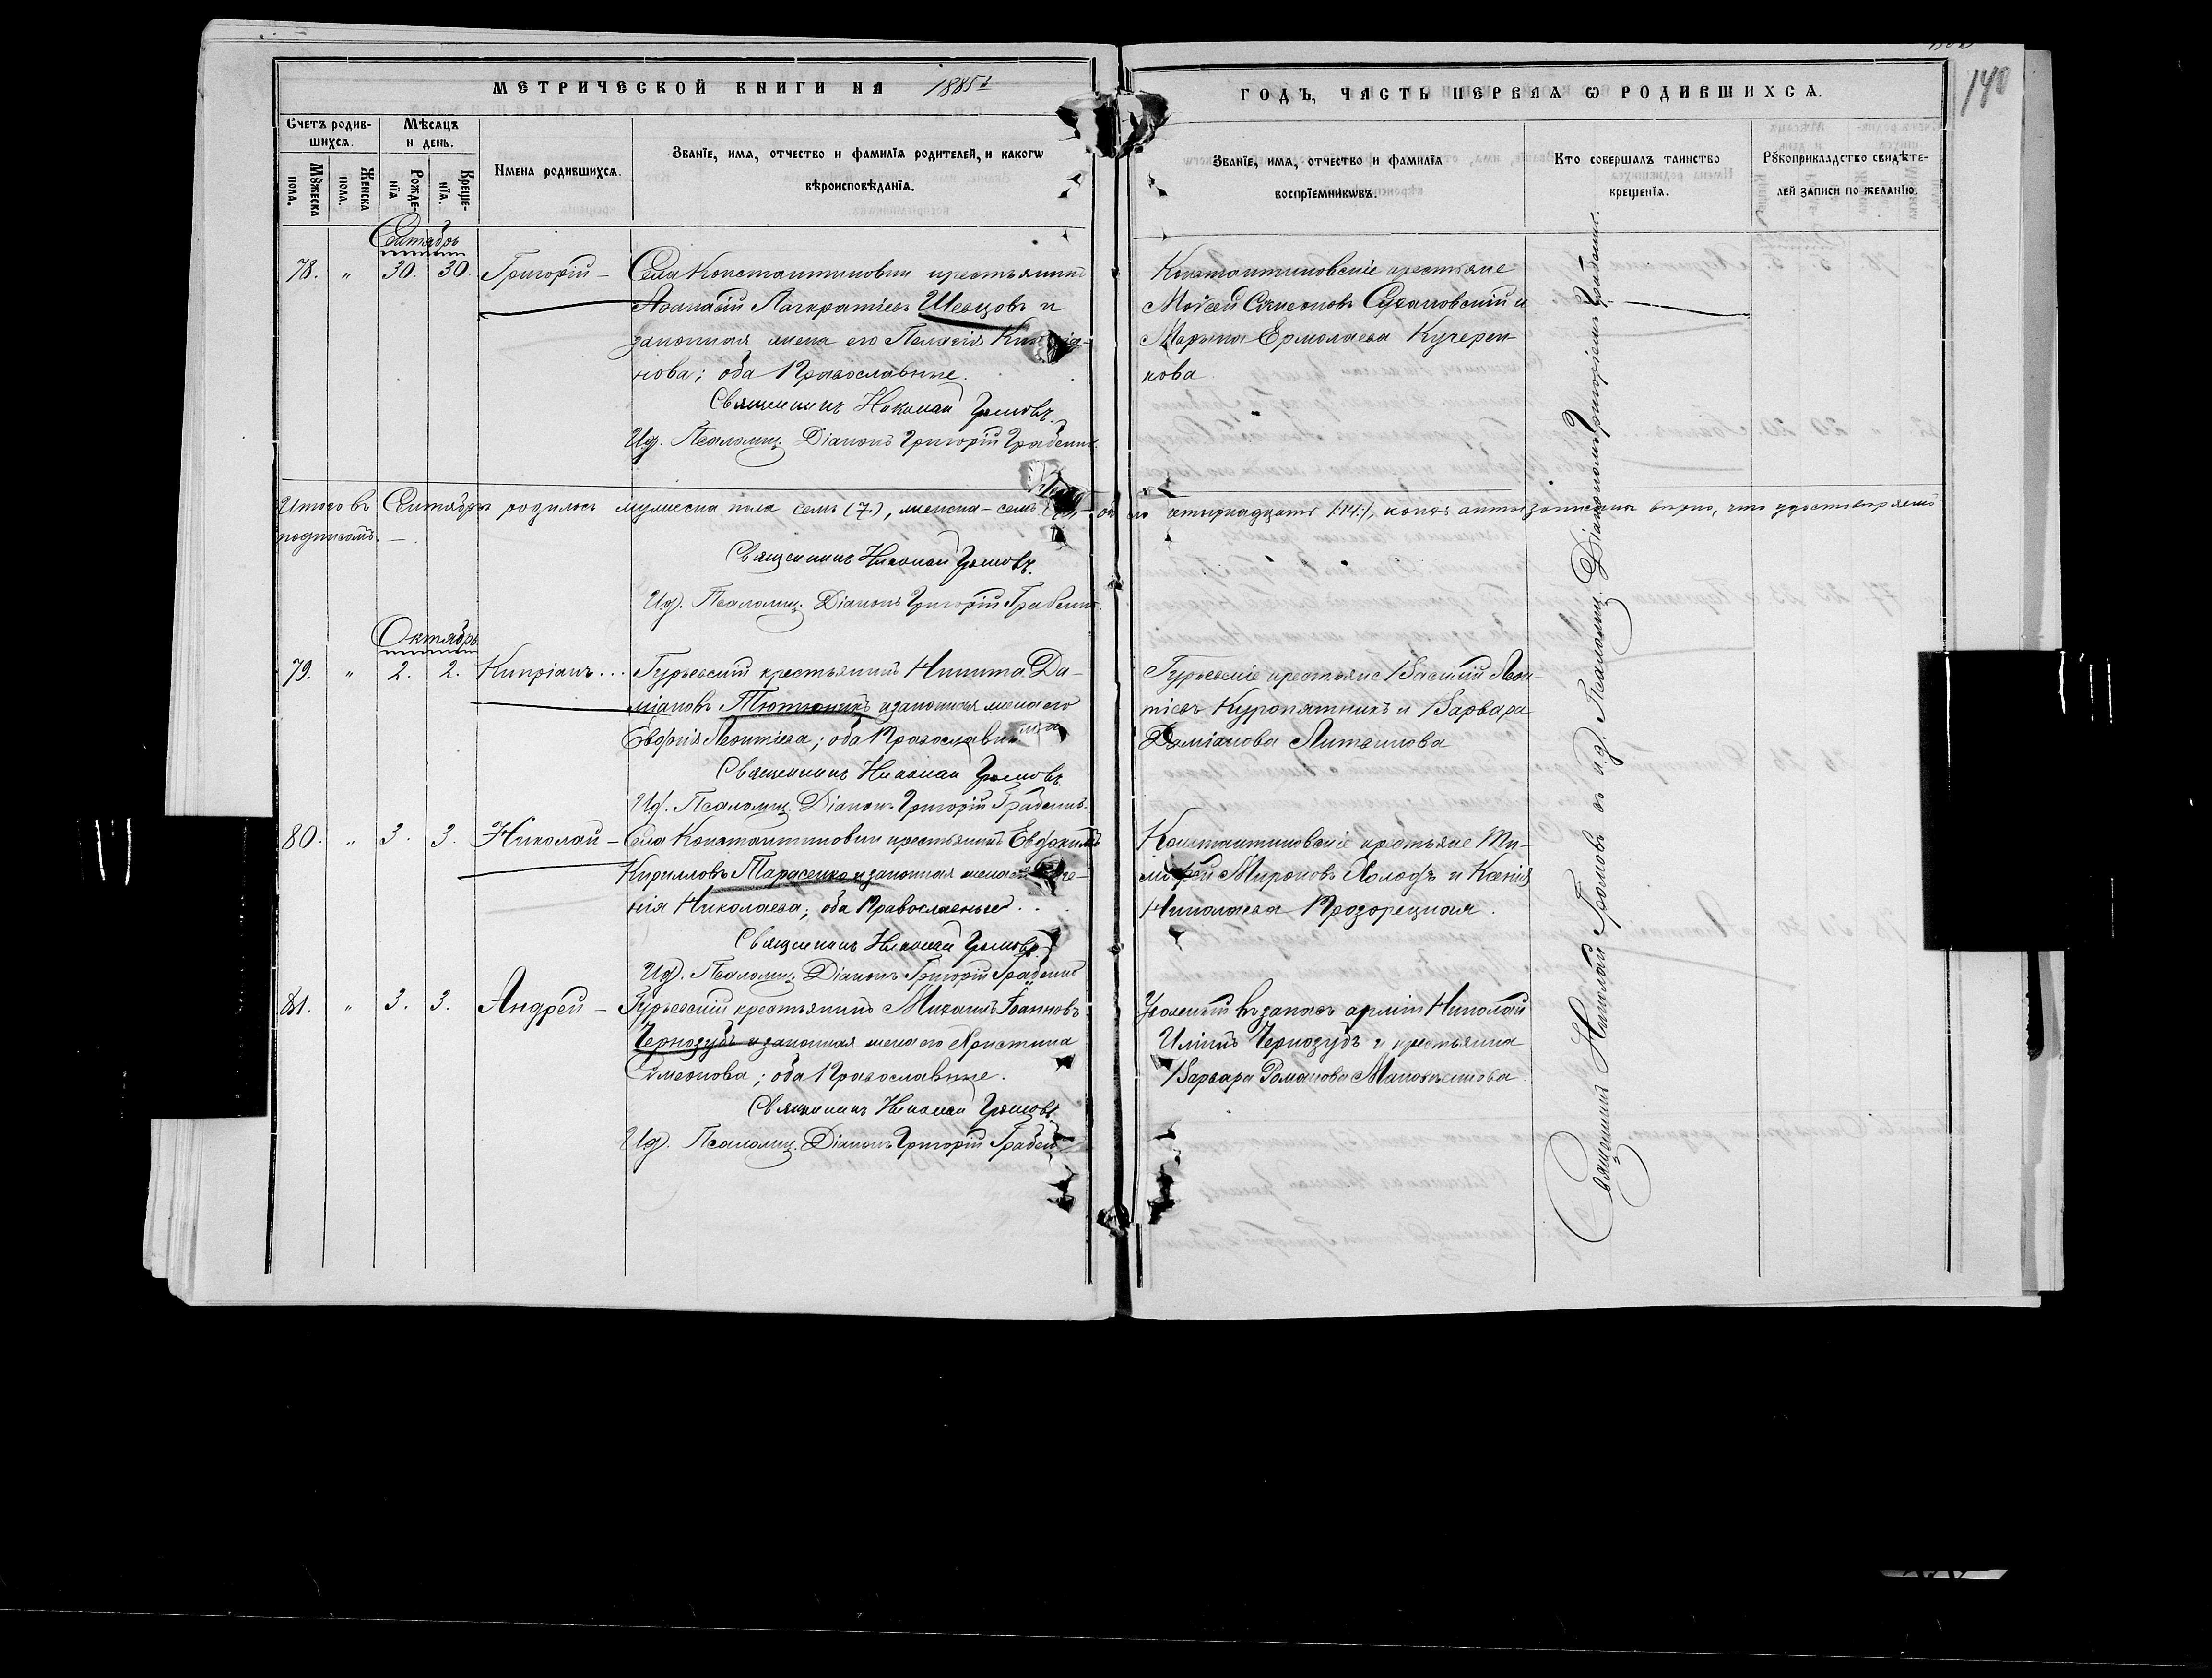 МЕТРИЧЕСКОЙ КНИГИ НА 1885й
ГОДЪ, ЧАСТЬ ПЕРВАЯ Ѡ РОДИВШИХСЯ.
140
Счетъ родив-
шихся.
Мѣсяцъ
и день.
Мꙋжеска
пола.
Женска
пола.
Рожде-
нїя
Креще-
нїя.
Имена родившихся.
Званїе, имя, отчество и фамилїя родителей, и какогѡ
вѣроисповѣданїя.
Званїе, имя, отчество и фамилїя
воспрїемникѡвъ.
Кто совершалъ таинство
крещенїя.
Рꙋкоприкладство свидѣте-
лей записи по желанїю.
Сентябрь
78. " 30. 30. Григорій – Села Константиновки крестьянинъ
Аѳанасій Панкратіевъ Шевцовъ и
законная жена его Пелагія
нова; оба Православные.
Священникъ Николай Громовъ
Ид. Псаломщ. Діаконъ Григорій Грабенко
Константиновскіе крестьяне
Моѵсей Симеоновъ Сухановскій и
Марѳа Ермолаева Кучерен-
кова
Итого въ Сентябрѣ родилось мужеска пола семь (7.), женска – семь
четырнадцать /:14:/, коихъ акты записаны вѣрно, что удостовѣряемъ
подписомъ. –
Священникъ Николай Громовъ.
Ид. Псаломщ. Діаконъ Григорій Грабенко.
Октябрь
79. " 2. 2. Кипріанъ... Гурьевскій крестьянинъ Никита Да-
міановъ Тютюникъ и законная жена его
Евфимія Леонтіева; оба Православные
Священникъ Николай Громовъ
Ид. Псаломщ. Діаконъ Григорій Грабенко
Гурьевскіе крестьяне Василій Леон-
тіевъ Куропятникъ и Варвара
Даміанова Литвинова
80. " 3. 3. Николай – Села Константиновки крестьянинъ Евфимъ
Кирилловъ Тарасенко и законная жена его
нія Николаева; оба Православные.
Священникъ Николай Громовъ
Ид. Псаломщ. Діаконъ Григорій Грабенко
Константиновскіе крестьяне Ти-
моѳей Мироновъ Холодъ и Ксенія
Николаева Прозорецкая.
81. " 3. 3. Андрей – Гурьевскій крестьянинъ Михаилъ Іоанновъ
Чернозубъ и законная жена его Христина
Симеонова; оба Православные.
Священникъ Николай Громовъ
Ид. Псаломщ. Діаконъ Григорій Грабенко
Уволеный въ запасъ арміи Николай
Иліинъ Чернозубъ и крестьянка
Варвара Романова
Священникъ Николай Громовъ съ и.д. Псаломщ. Діакономъ Григоріемъ Грабенко.